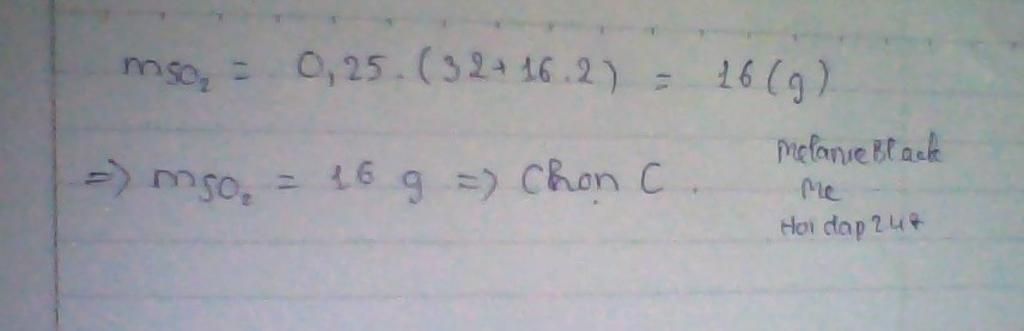 mSO₂ = 0,25.(32+16.2) = 16(g)
=> mSO₂ = 16 g => Chọn C.
MelanieBlack
Me
Hoidap247